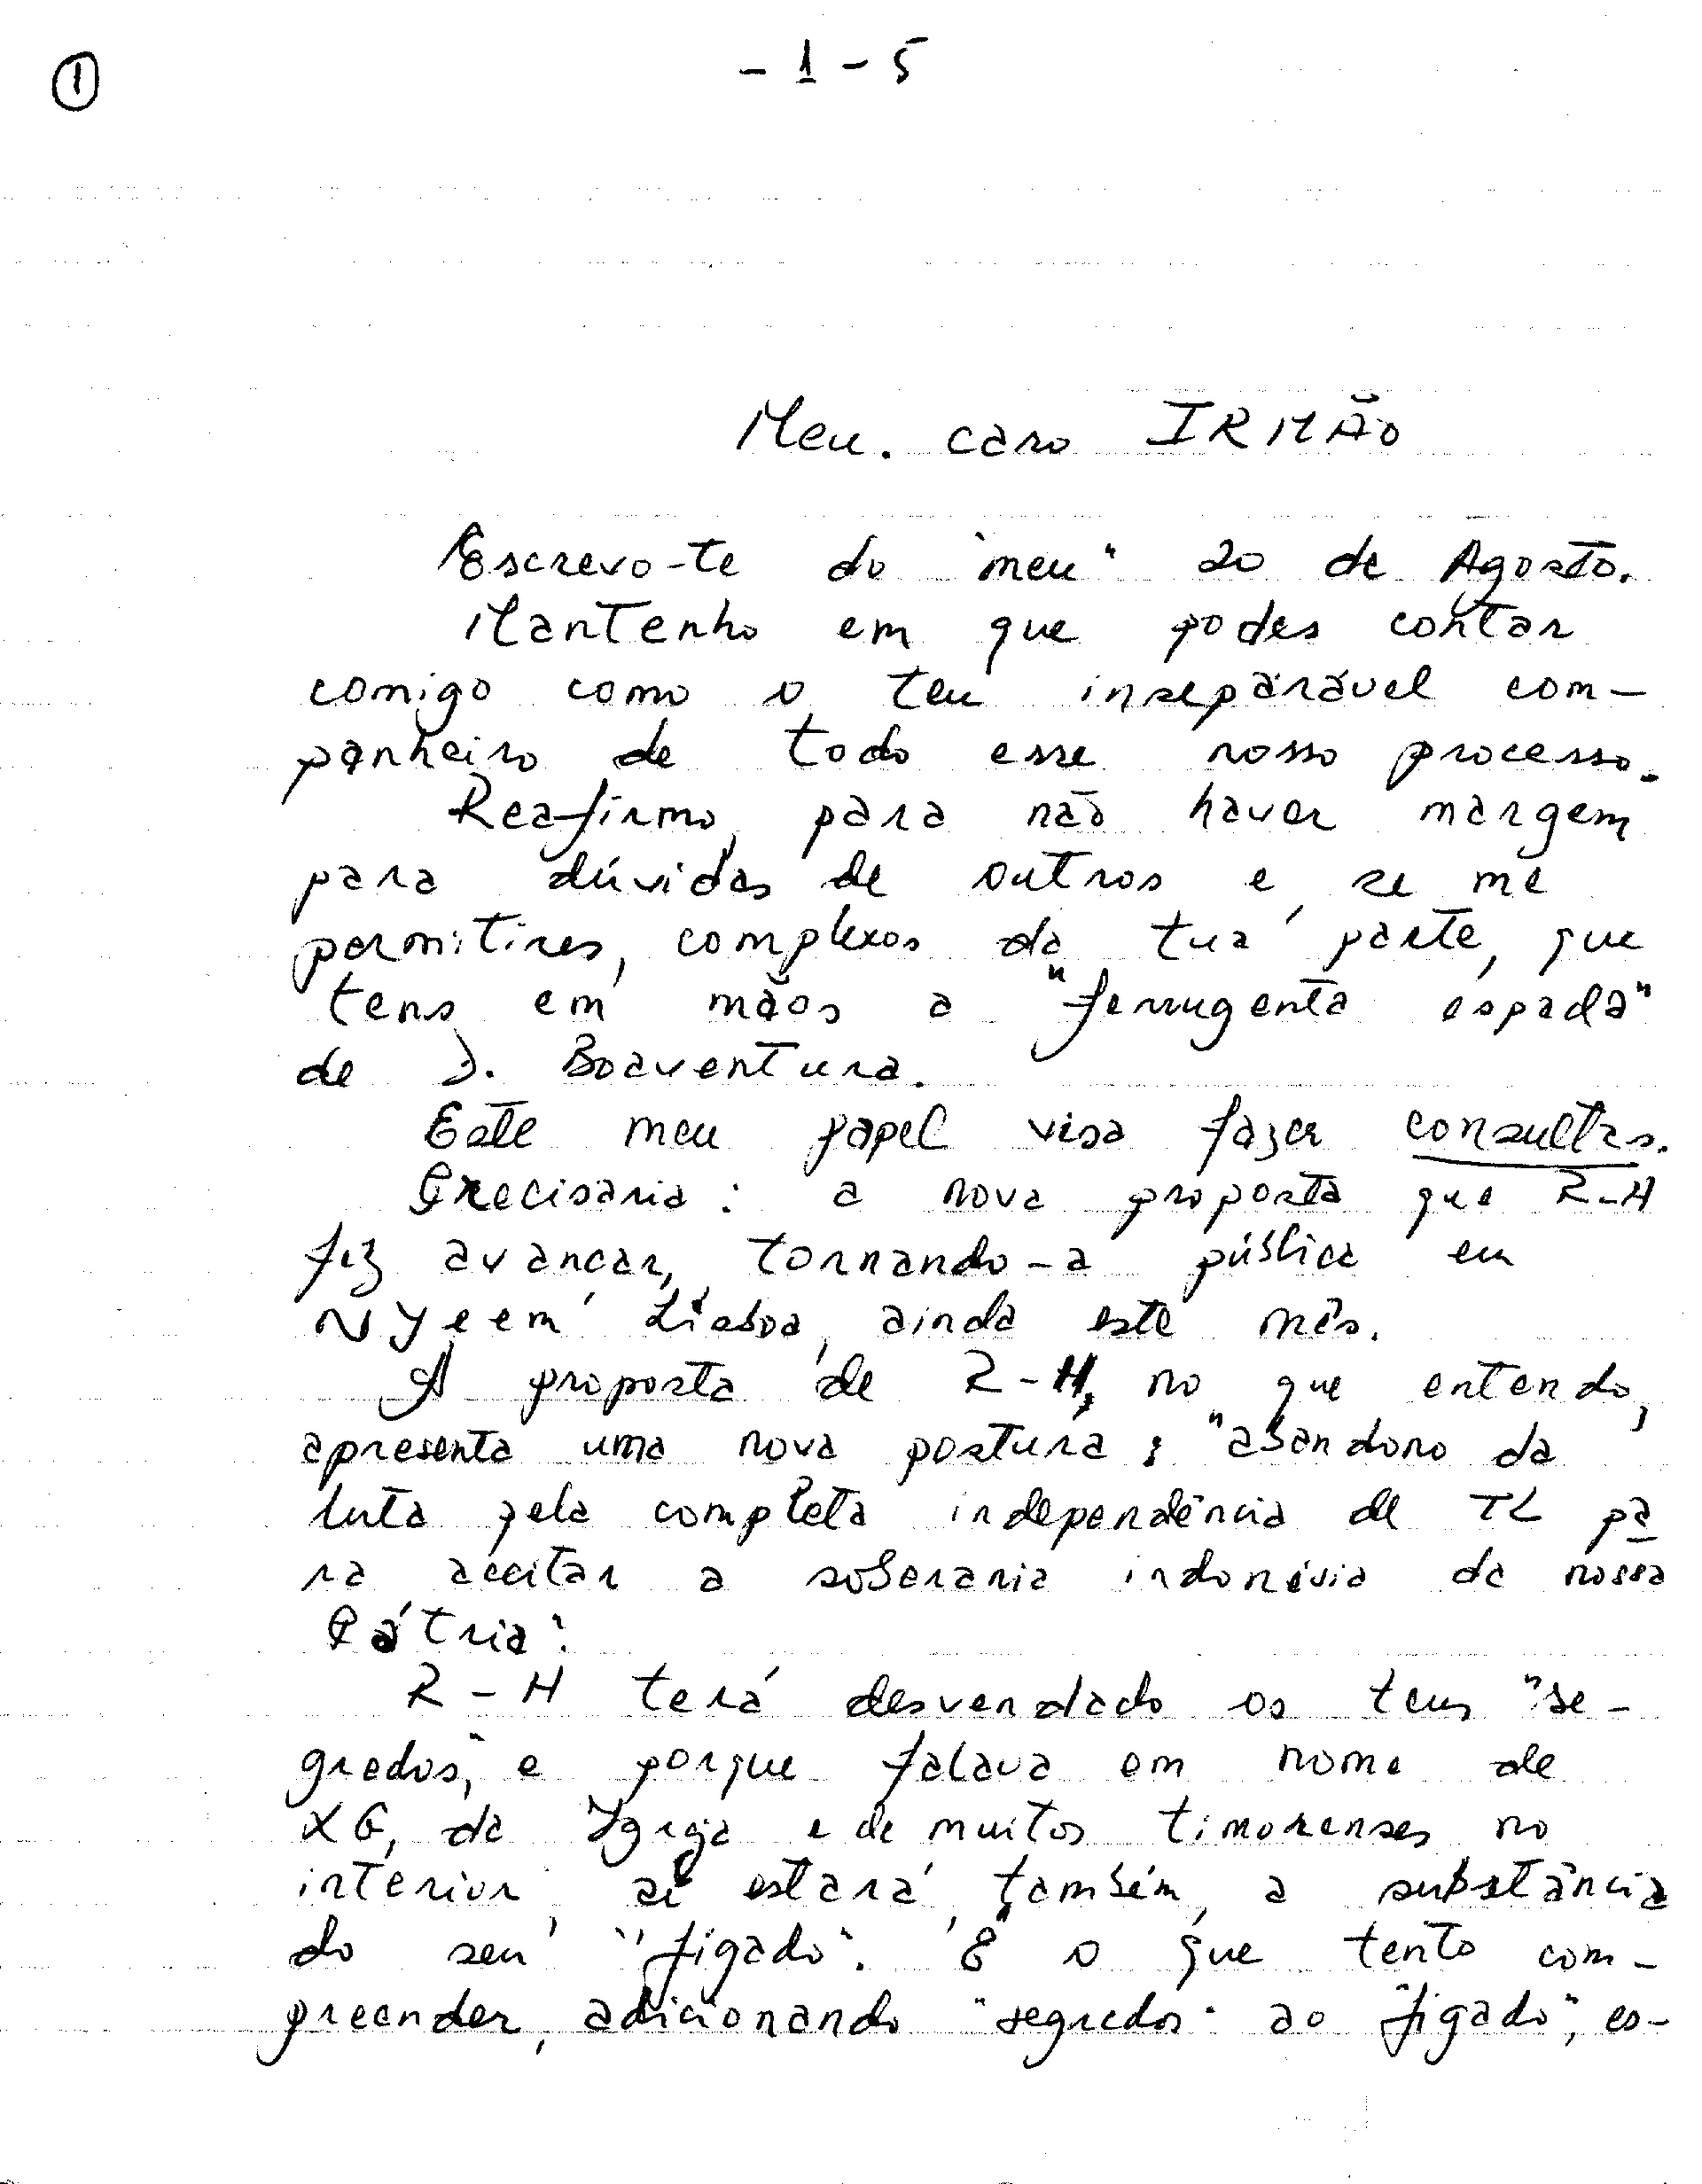 ①
- 1 - 5
Meu. caro IRMÃO
Escrevo-te do "meu" 20 de Agosto.
Mantenho em que podes contar
comigo como o teu inseparável com-
panheiro de todo esse nosso processo.
Reafirmo, para não haver margem
para dúvidas de outros e, se me
permitires, complexos da tua parte, que
tens em mãos a "ferrugenta espada"
de D. Boaventura.
Este meu papel visa fazer consultas.
Precisaria: a nova proposta que R-H
fez avancar, tornando-a pública em
NY e em Lisboa, ainda este mês.
A proposta de R-H, no que entendo,
apresenta uma nova postura: "abandono da
luta pela completa independência de TL pa
ra aceitar a soberania indonésia da nossa
Pátria".
R-H terá desvendado os teus "se-
gredos", e porque falava em nome de
XG, da Igreja e de muitos timorenses no
interior, aí estará, também, a substância
do seu "fígado". É o que tento com-
preender, adicionando "segredos" ao "fígado", es-